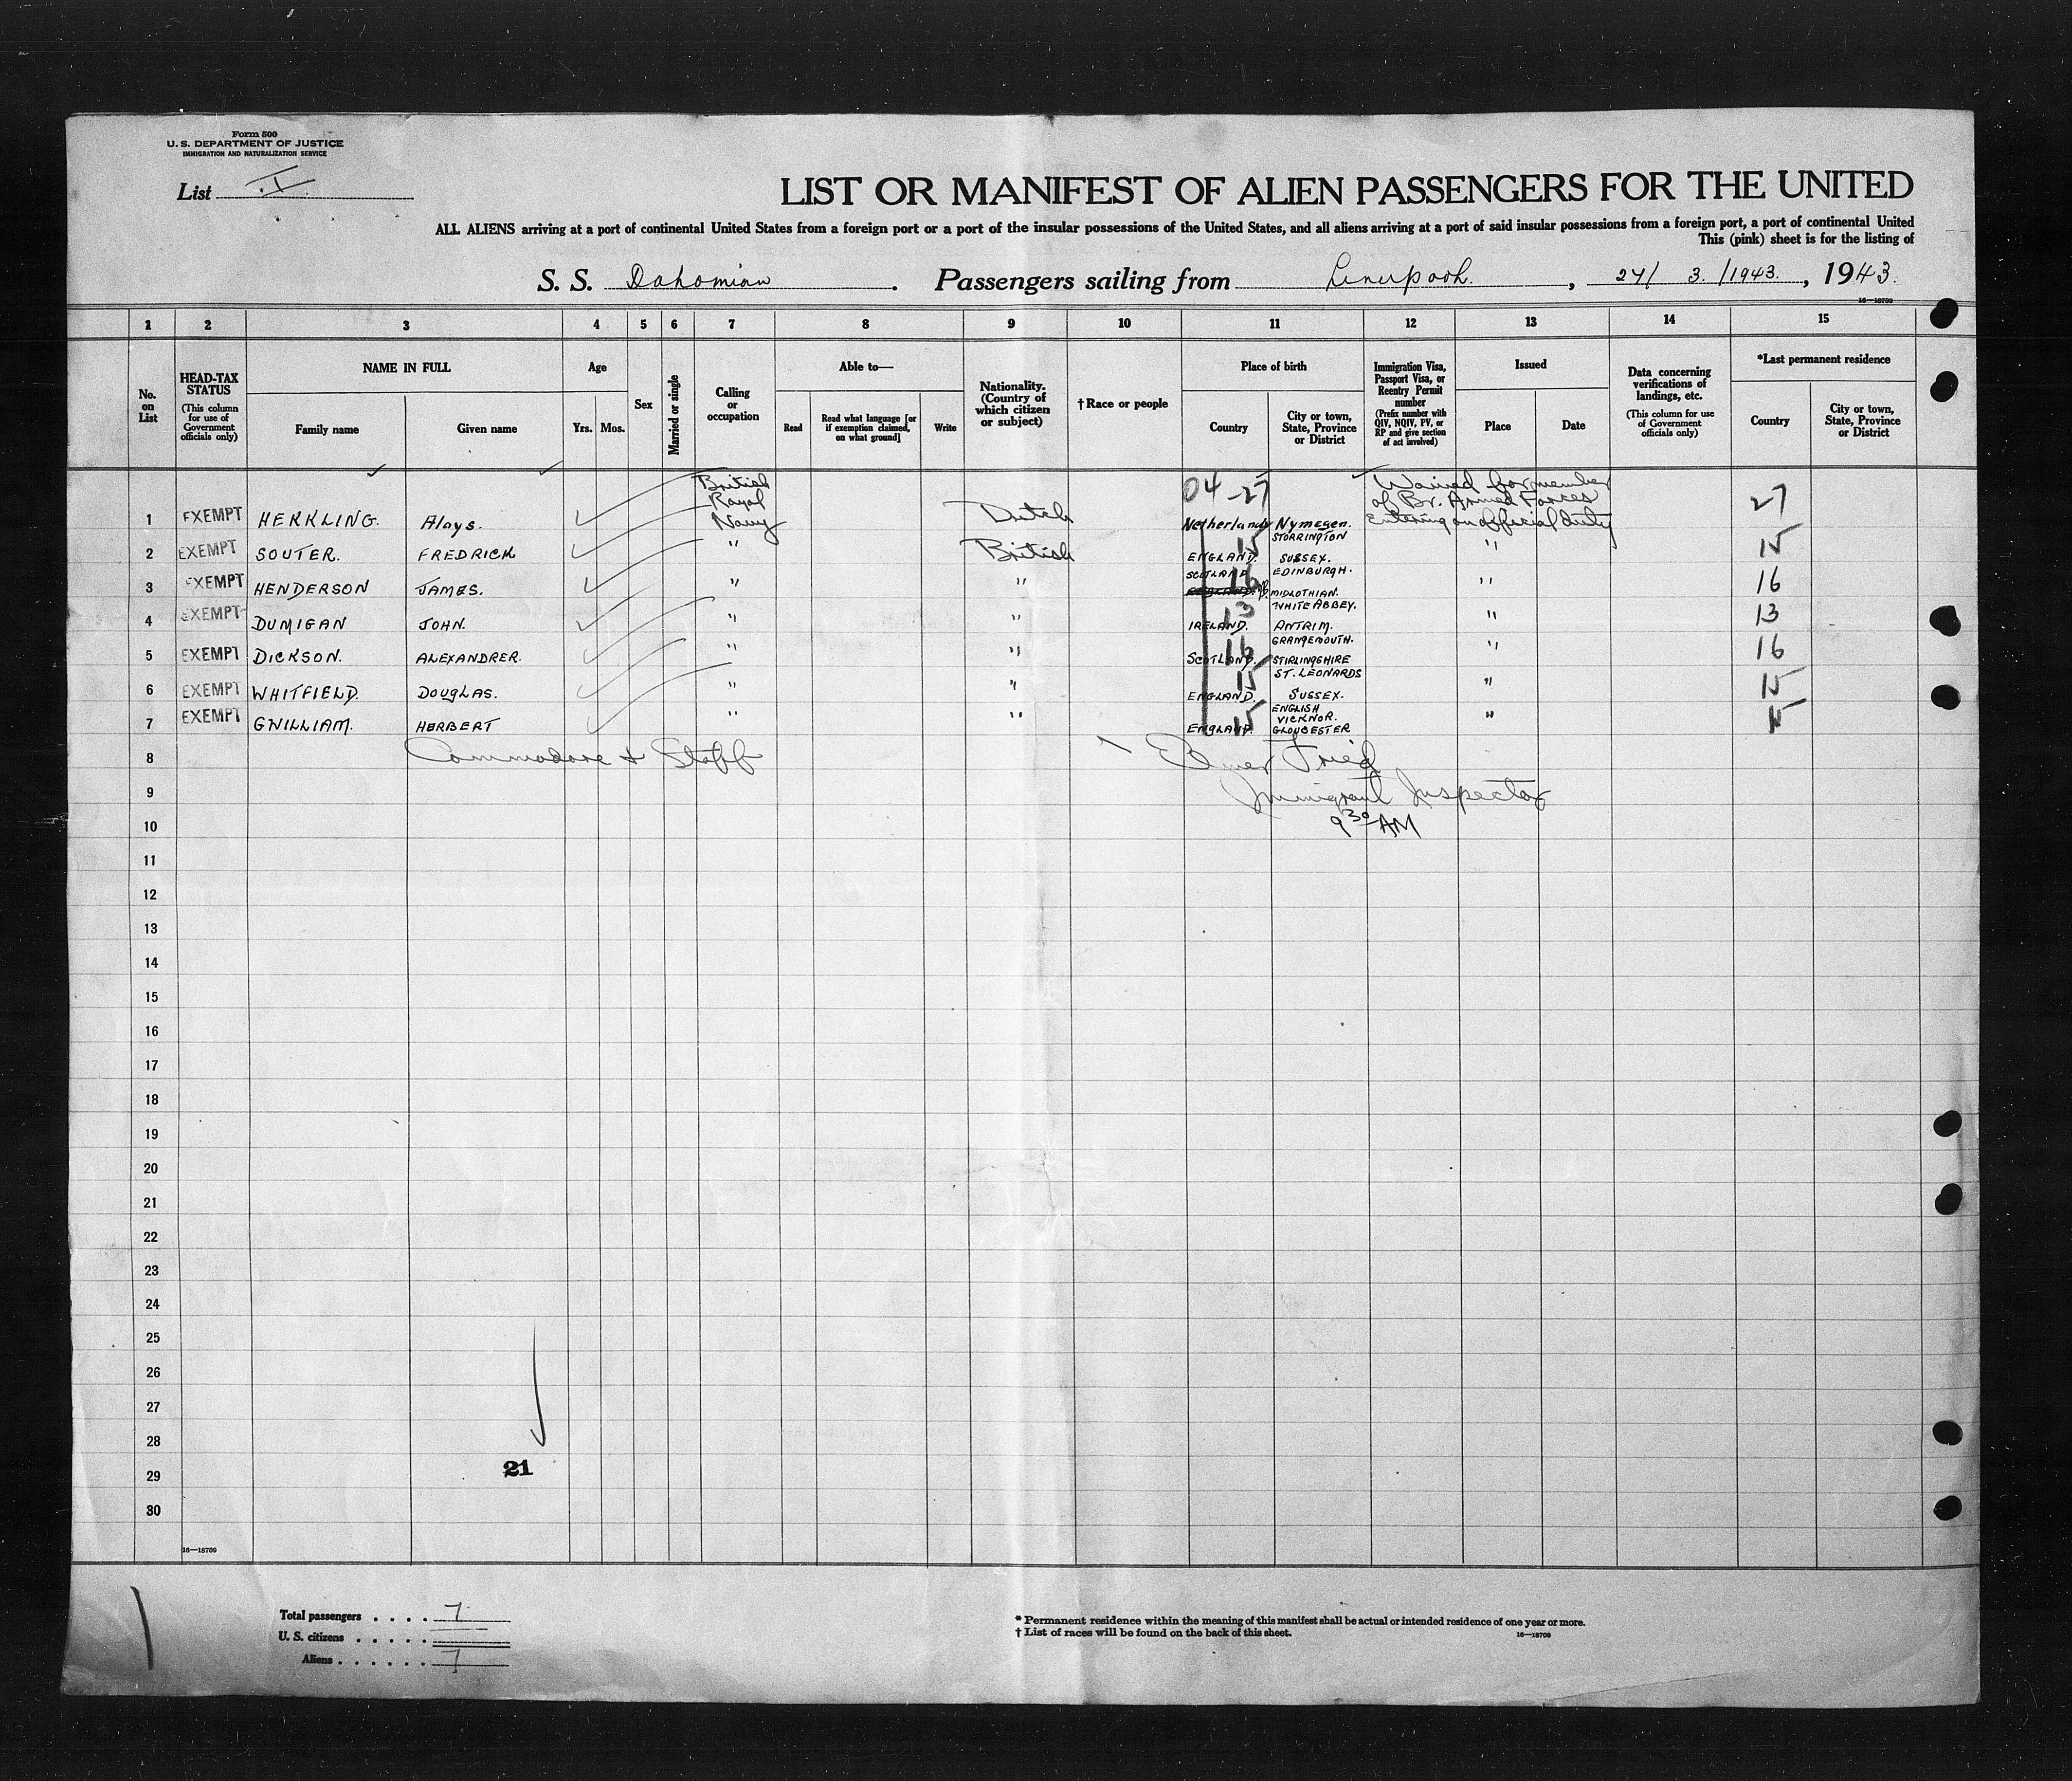 Form 500
U. S. DEPARTMENT OF JUSTICE
IMMIGRATION AND NATURALIZATION SERVICE
List I
LIST OR MANIFEST OF ALIEN PASSENGERS FOR THE UNITED
ALL ALIENS arriving at a port of continental United States from a foreign port or a port of the insular possessions of the United States, and all aliens arriving at a port of said insular possessions from a foreign port, a port of continental United
This (pink) sheet is for the listing of
S. S. Dahomian. Passengers sailing from Liverpool., 24/ 3. /1943., 1943.
16—18709
1 2 3 4 5 6 7 8 9 10 11 12 13 14 15
No. on List
HEAD-TAX STATUS (This column for use of Government officials only)
NAME IN FULL
Family name
Given name
Age
Yrs. Mos.
Sex
Married or single
Calling or occupation
Able to—
Read
Read what language [or if exemption claimed, on what ground]
Write
Nationality. (Country of which citizen or subject)
† Race or people
Place of birth
Country
City or town, State, Province or District
Immigration Visa, Passport Visa, or Reentry Permit number (Prefix number with QIV, NQIV, PV, or RP and give section of act involved)
Issued
Place
Date
Data concerning verifications of landings, etc. (This column for use of Government officials only)
*Last permanent residence
Country
City or town, State, Province or District
1 EXEMPT HERKLING. Aloys. British Royal Navy Dutch 04-27 Netherlands Nymegen. Waived for member of Br. Armed Forces Entering on official duty 27
2 EXEMPT SOUTER. FREDRICK " British 15 ENGLAND. STORRINGTON SUSSEX. " 15
3 EXEMPT HENDERSON JAMES. " " SCOTLAND 16 EDINBURGH. MIDLOTHIAN. " 16
4 EXEMPT DUMIGAN JOHN. " " 13 IRELAND. WHITE ABBEY. ANTRIM. " 13
5 EXEMPT DICKSON. ALEXANDRER. " " 16 SCOTLAND. GRANGEMOUTH. STIRLINGSHIRE " 16
6 EXEMPT WHITFIELD. DOUGLAS. " " 15 ENGLAND. ST. LEONARDS SUSSEX. " 15
7 EXEMPT GWILLIAM. HERBERT " " 15 ENGLAND. ENGLISH VICKNOR. GLOUCESTER " 15
8 Commodore & Staff Elmer Fried
9 Immigrant Inspector
10 9 30 AM
11
12
13
14
15
16
17
18
19
20
21
22
23
24
25
26
27
28
29 21
30
16—18709
Total passengers . . . . 7
U. S. citizens . . . . .
Aliens . . . . . . 7
* Permanent residence within the meaning of this manifest shall be actual or intended residence of one year or more.
† List of races will be found on the back of this sheet.
16—18709